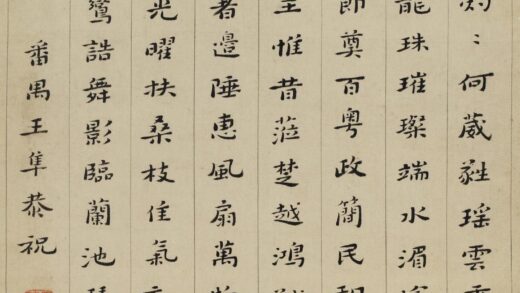 灼〻何葳蕤瑶雲
龍珠璀璨端水湄
奠百粤政簡民
惟昔蒞楚越鴻
者邊陲惠風扇萬
光曜扶桑枝佳氣
鸞誥舞影臨蘭池
番禺王隼恭祝